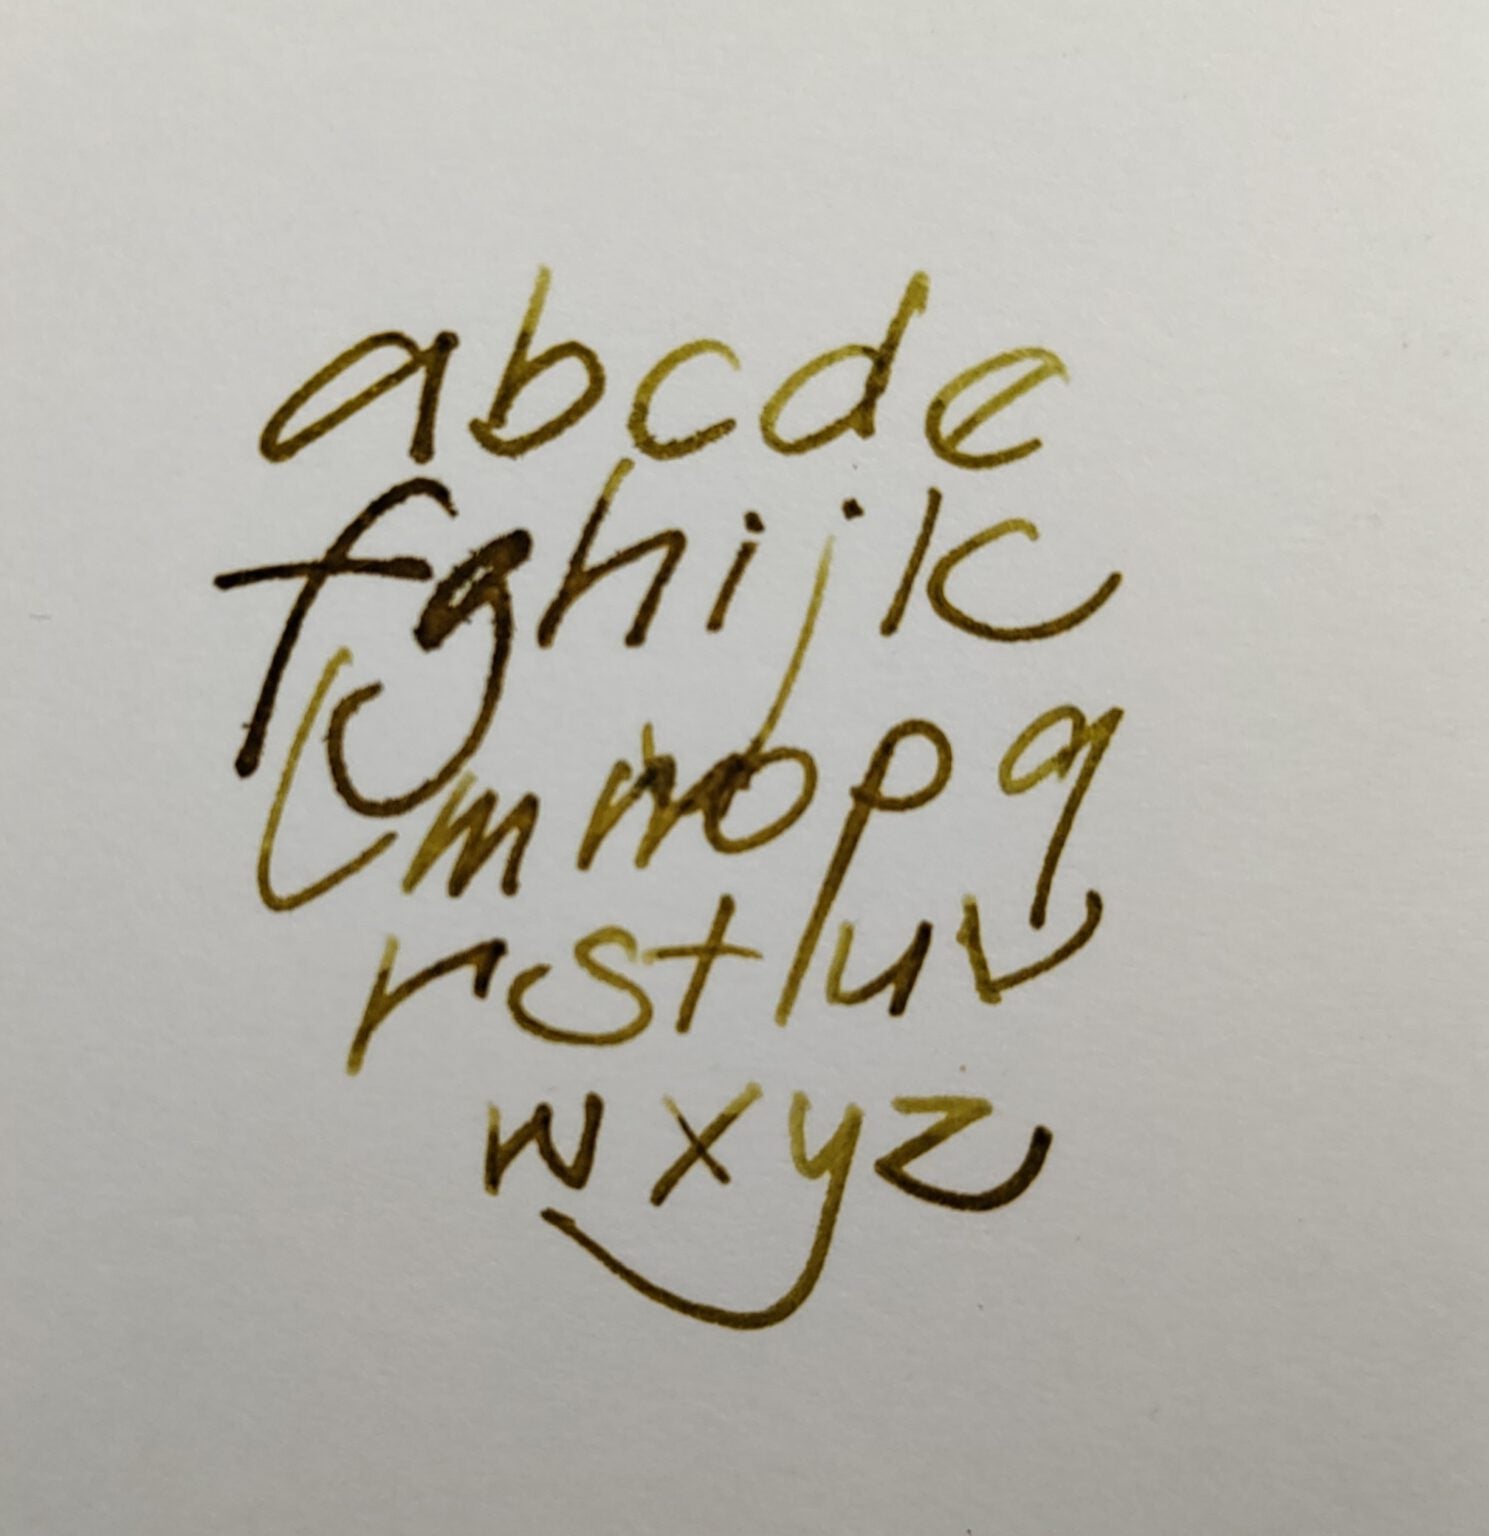 abcde
fghijk
lmnopq
rstuv
wxyz